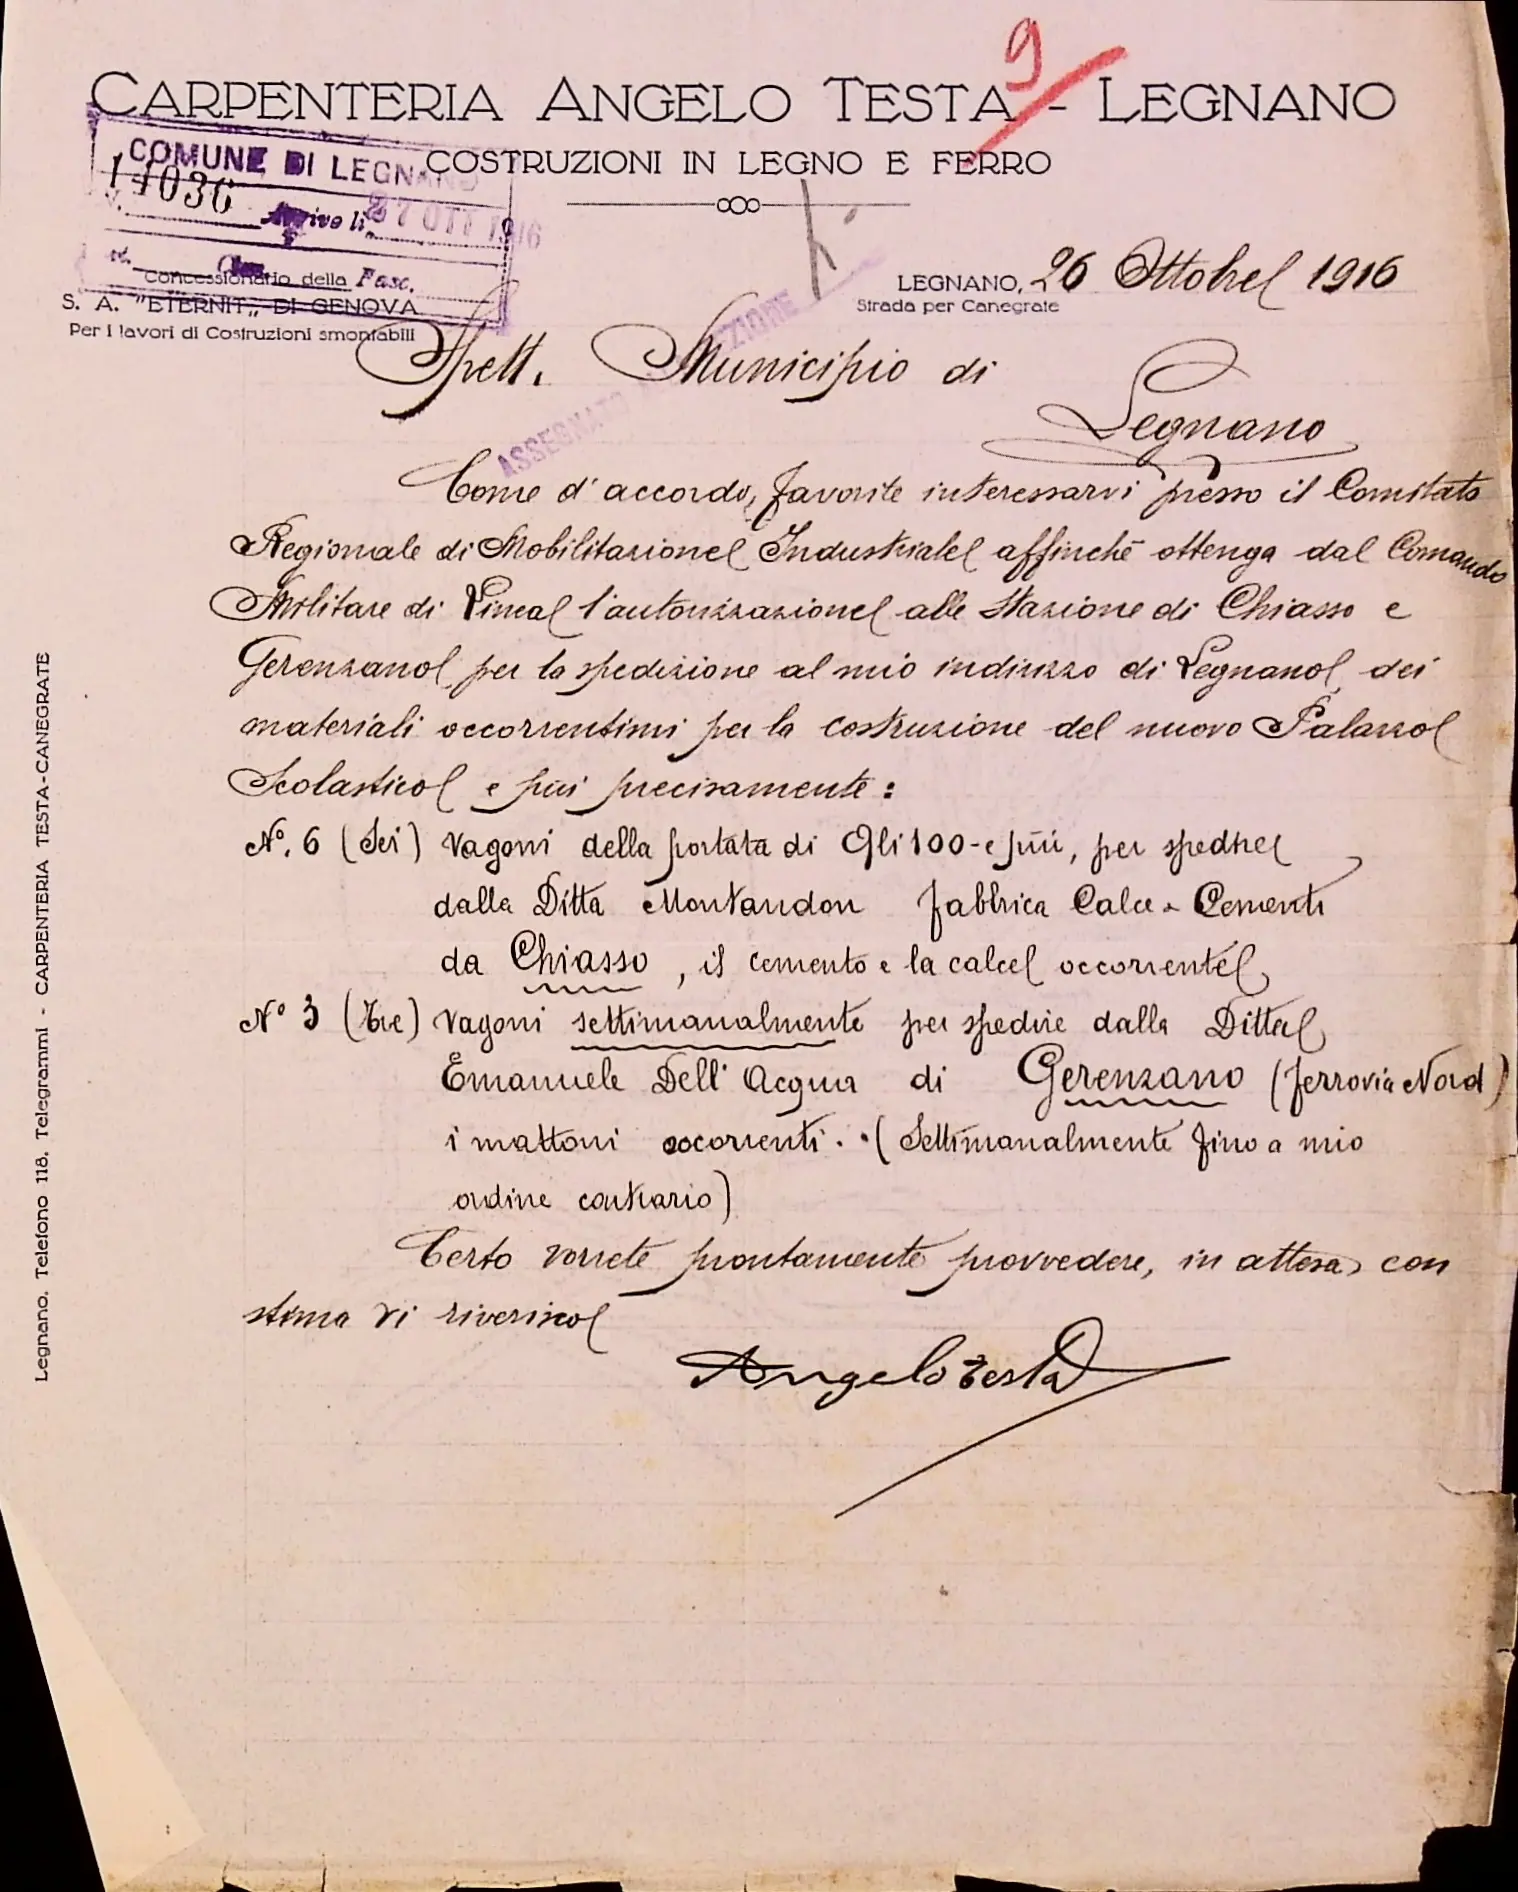 9
CARPENTERIA ANGELO TESTA - LEGNANO
COSTRUZIONI IN LEGNO E FERRO
COMUNE DI LEGNANO
Arrivo li 27 OTT 1916
Clas. Fasc.
Concessionario della
S. A. "ETERNIT„ DI GENOVA
Per i lavori di Costruzioni smontabili
LEGNANO, 26 Ottobre 1916
Strada per Canegrate
ASSEGNATO ZIONE
Spett. Municipio di
Legnano
Come d'accordo, favorite interessarvi presso il Comitato
Regionale di Mobilitazione Industriale affinchè ottenga dal Comando
Militare di Linea l'autorizzazione alle Stazione di Chiasso e
Gerenzano, per la spedizione al mio indirizzo di Legnano, dei
materiali occorrentimi per la costruzione del nuovo Palazzo
Scolastico e più precisamente:
N°. 6 (Sei) vagoni della portata di Qli 100 - e più, per spedire
dalla Ditta Montandon fabbrica Calce - Cementi
da Chiasso, il cemento e la calce occorrente,
N° 3 (Tre) vagoni settimanalmente per spedire dalla Ditta
Emanuele Dell'Acqua di Gerenzano (ferrovia Nord)
i mattoni occorrenti. (Settimanalmente fino a mio
ordine contrario)
Certo vorrete prontamente provvedere, in attesa, con
stima vi riverisco
Angelo Testa
Legnano. Telefono 118. Telegrammi - CARPENTERIA TESTA-CANEGRATE